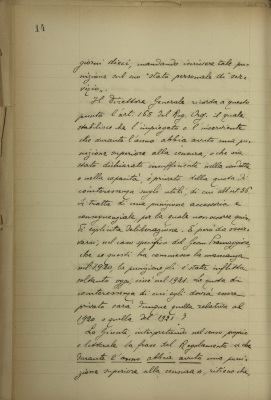 14
giorni dieci, mandando iscrivere tale pu-
nizione sul suo "stato personale di ser-
vizio".
Il Direttore Generale ricorda a questo
punto l'art. 165 del Reg. Org. il quale
stabilisce che l'impiegato o l'inserviente
che durante l'anno abbia avuto una pu-
nizione superiore alla censura, o che sia
stato dichiarato insufficiente nella condotta
o nella capacità, è privato della quota di
cointeressenza sugli utili, di cui all'art. 56.
Si tratta di una punizione accessoria e
consequenziale, per la quale non occorre quin-
di esplicita deliberazione. È però da osser-
varsi, nel caso specifico del
che se questi ha commesso la mancanza
nel 1920, la punizione gli è stata inflitta
soltanto oggi, cioè nel 1921. La quota di
cointeressenza di cui egli dovrà essere
privato sarà dunque quella relativa al
1920 o quella del 1921?
La Giunta, interpretando nel senso proprio
e letterale la frase del Regolamento "che
durante l'anno abbia avuto una puni-
zione superiore alla censura", ritiene che